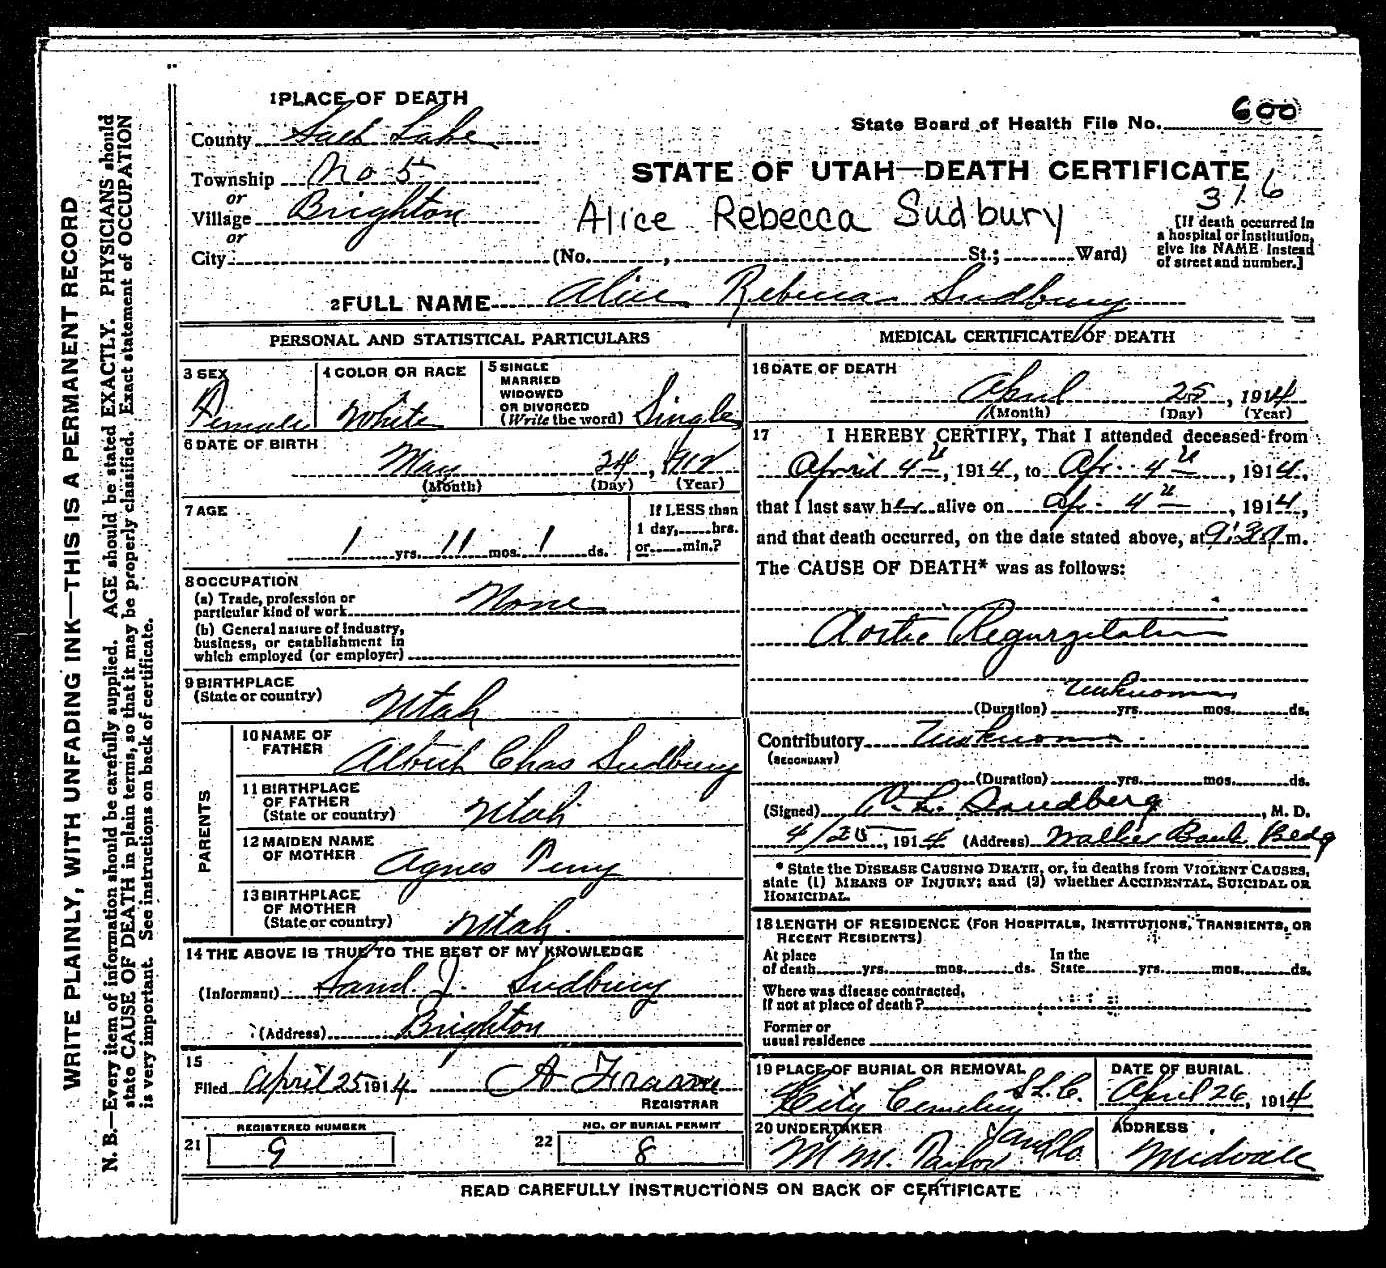 WRITE PLAINLY, WITH UNFADING INK—THIS IS A PERMANENT RECORD
N. B.—Every item of information should be carefully supplied. AGE should be stated EXACTLY. PHYSICIANS should
state CAUSE OF DEATH in plain terms, so that it may be properly classified. Exact statement of OCCUPATION
is very important. See instructions on back of certificate.
1 PLACE OF DEATH
County Salt Lake
Township No 5
or
Village Brighton
or
City
State Board of Health File No. 600
STATE OF UTAH—DEATH CERTIFICATE
316
Alice Rebecca Sudbury
[If death occurred in
a hospital or institution,
give its NAME instead
of street and number.]
(No. , St.; Ward)
2 FULL NAME Alice Rebecca Sudbury
PERSONAL AND STATISTICAL PARTICULARS
3 SEX
Female
4 COLOR OR RACE
White
5 SINGLE
MARRIED
WIDOWED
OR DIVORCED
(Write the word) Single
6 DATE OF BIRTH
May 24, 1912
(Month) (Day) (Year)
7 AGE
1 yrs. 11 mos. 1 ds.
If LESS than
1 day, hrs.
or min.?
8 OCCUPATION
(a) Trade, profession or
particular kind of work None
(b) General nature of industry,
business, or establishment in
which employed (or employer)
9 BIRTHPLACE
(State or country) Utah
PARENTS
10 NAME OF
FATHER Albert Chas Sudbury
11 BIRTHPLACE
OF FATHER
(State or country) Utah
12 MAIDEN NAME
OF MOTHER Agnes Perry
13 BIRTHPLACE
OF MOTHER
(State or country) Utah.
14 THE ABOVE IS TRUE TO THE BEST OF MY KNOWLEDGE
(Informant) Saml. J. Sudbury
(Address) Brighton
15
Filed April 25 1914 A
REGISTRAR
21 REGISTERED NUMBER
9
22 NO. OF BURIAL PERMIT
8
MEDICAL CERTIFICATE OF DEATH
16 DATE OF DEATH
April 25, 1914
(Month) (Day) (Year)
17 I HEREBY CERTIFY, That I attended deceased from
April 4th, 1914, to Ap. 4th, 1914,
that I last saw her alive on Ap. 4th, 1914,
and that death occurred, on the date stated above, at 9:30 m.
The CAUSE OF DEATH* was as follows:
Aortic Regurgitation
unknown
(Duration) yrs. mos. ds.
Contributory Unknown
(SECONDARY)
(Duration) yrs. mos. ds.
(Signed) C. L. Sandberg, M. D.
4/25, 1914 (Address) Walker Bank Bldg
* State the DISEASE CAUSING DEATH, or, in deaths from VIOLENT CAUSES,
state (1) MEANS OF INJURY; and (2) whether ACCIDENTAL, SUICIDAL OR
HOMICIDAL.
18 LENGTH OF RESIDENCE (FOR HOSPITALS, INSTITUTIONS, TRANSIENTS, OR
RECENT RESIDENTS)
At place In the
of death yrs. mos. ds. State yrs. mos. ds.
Where was disease contracted,
if not at place of death?
Former or
usual residence
19 PLACE OF BURIAL OR REMOVAL
City Cemetery S.L.C.
DATE OF BURIAL
April 26, 1914
20 UNDERTAKER
M M. Taylor
ADDRESS
Midvale
READ CAREFULLY INSTRUCTIONS ON BACK OF CERTIFICATE